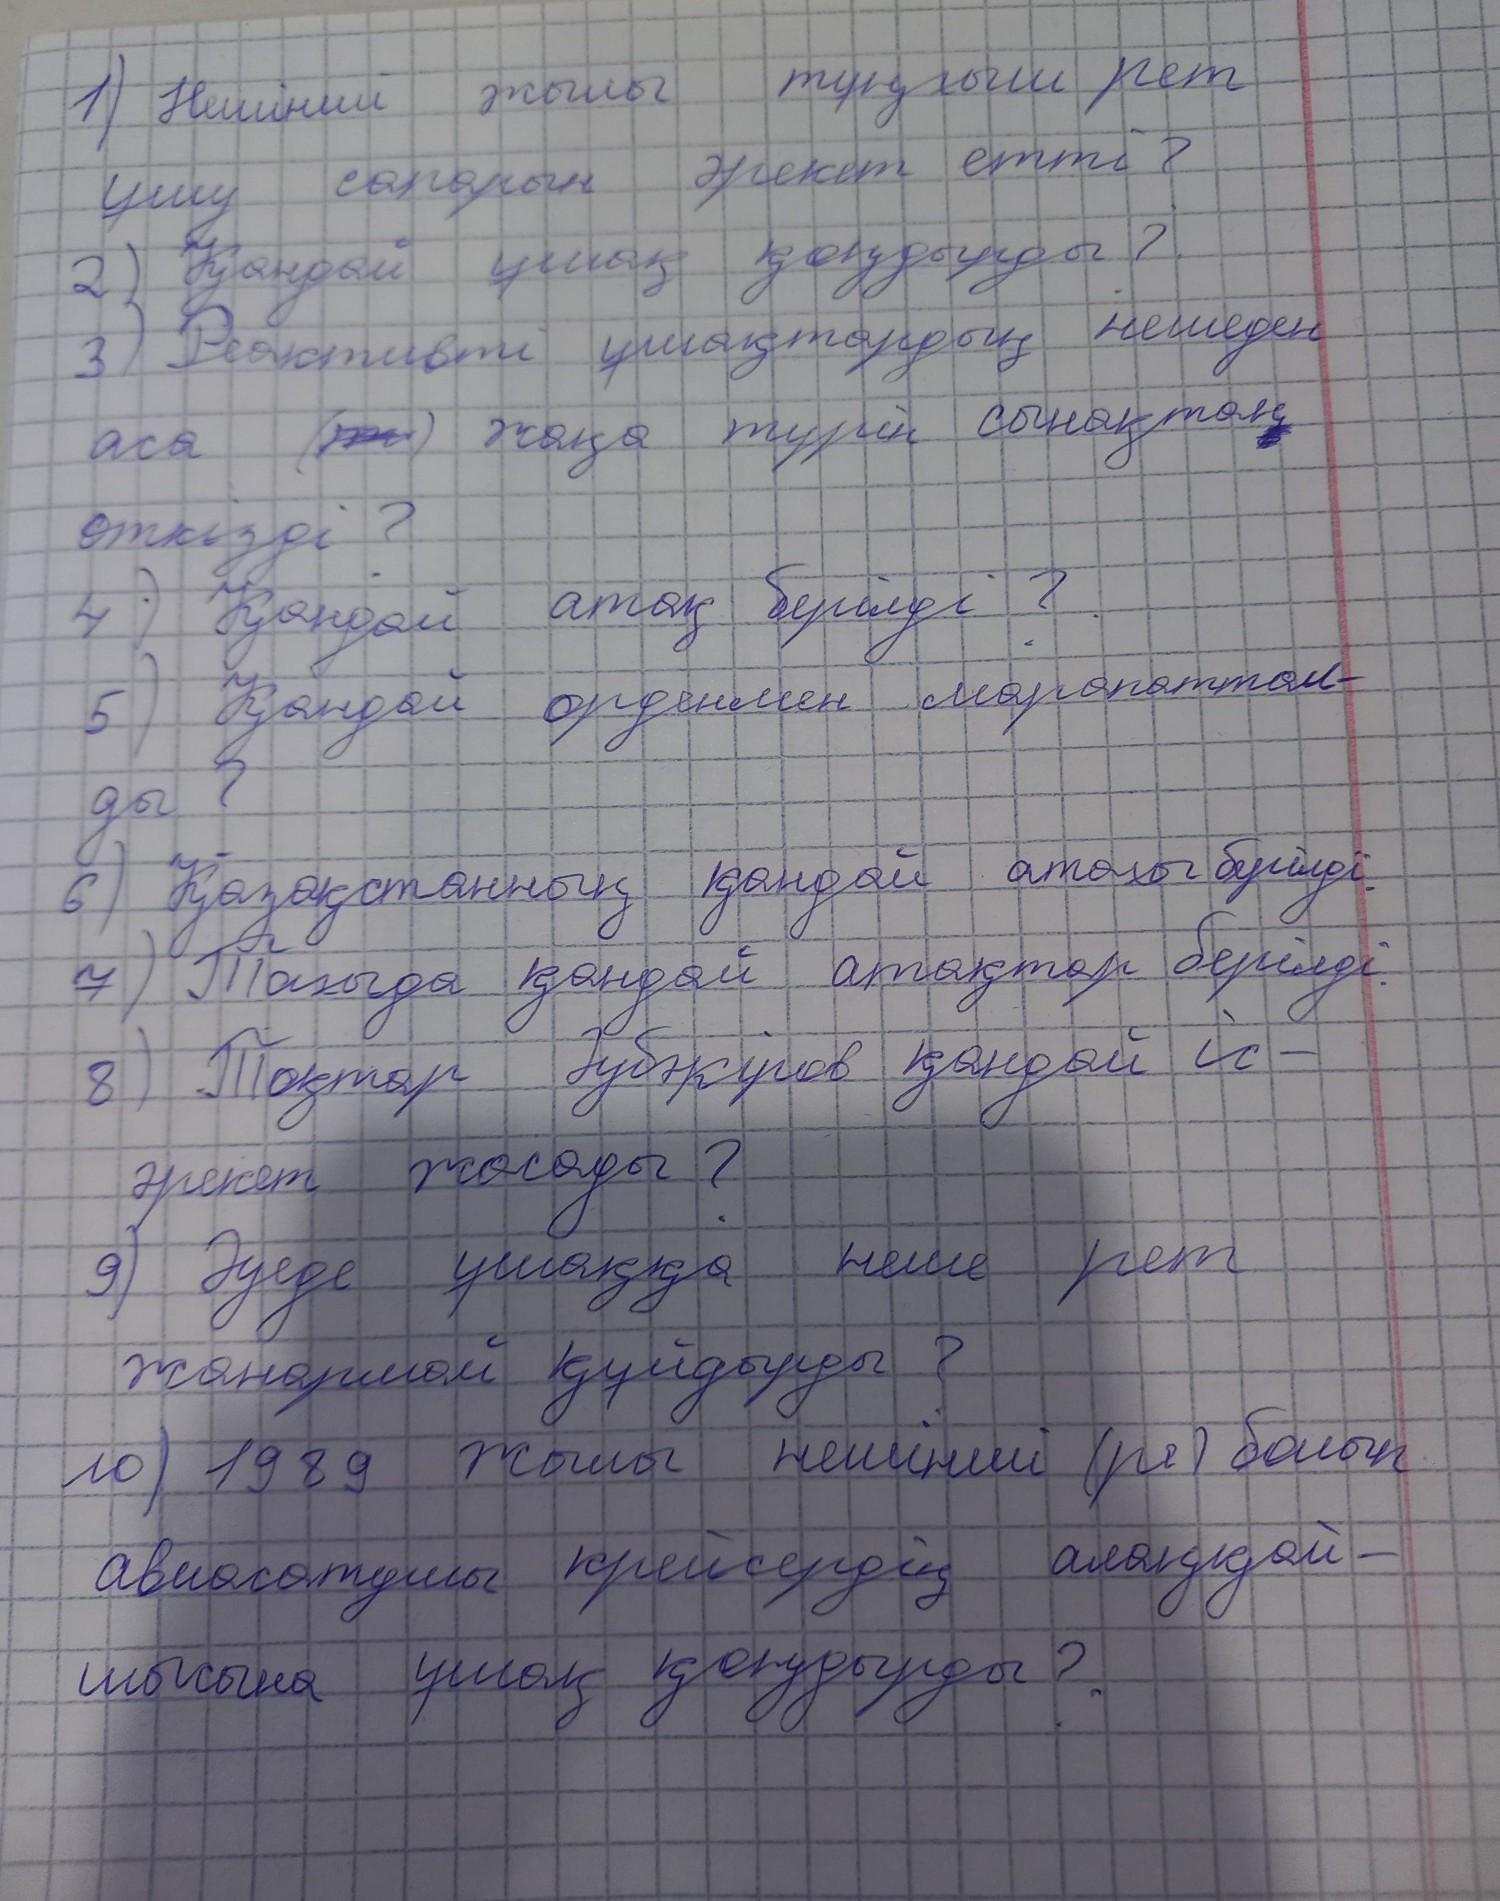 1) Нешінші жылы тұңғыш рет
ұшу сапарын әрекет етті?
2) Қандай ұшақ қондырды?
3) Реактивті ұшақтардың нешеден
аса жаңа түрін сынақтан
өткізді?
4) Қандай атақ берілді?
5) Қандай орденмен марапаттал-
ды?
6) Қазақстанның қандай атағы берілді.
7) Тағыда қандай атақтар берілді.
8) Тоқтар Әубәкіров қандай іс-
әрекет жасады?
9) Әуеде ұшаққа неше рет
жанармай құйдырды?
10) 1989 жылы нешінші (рет) болып
авиасатушы крейсердің алаңқай-
шығына ұшақ қондырды?